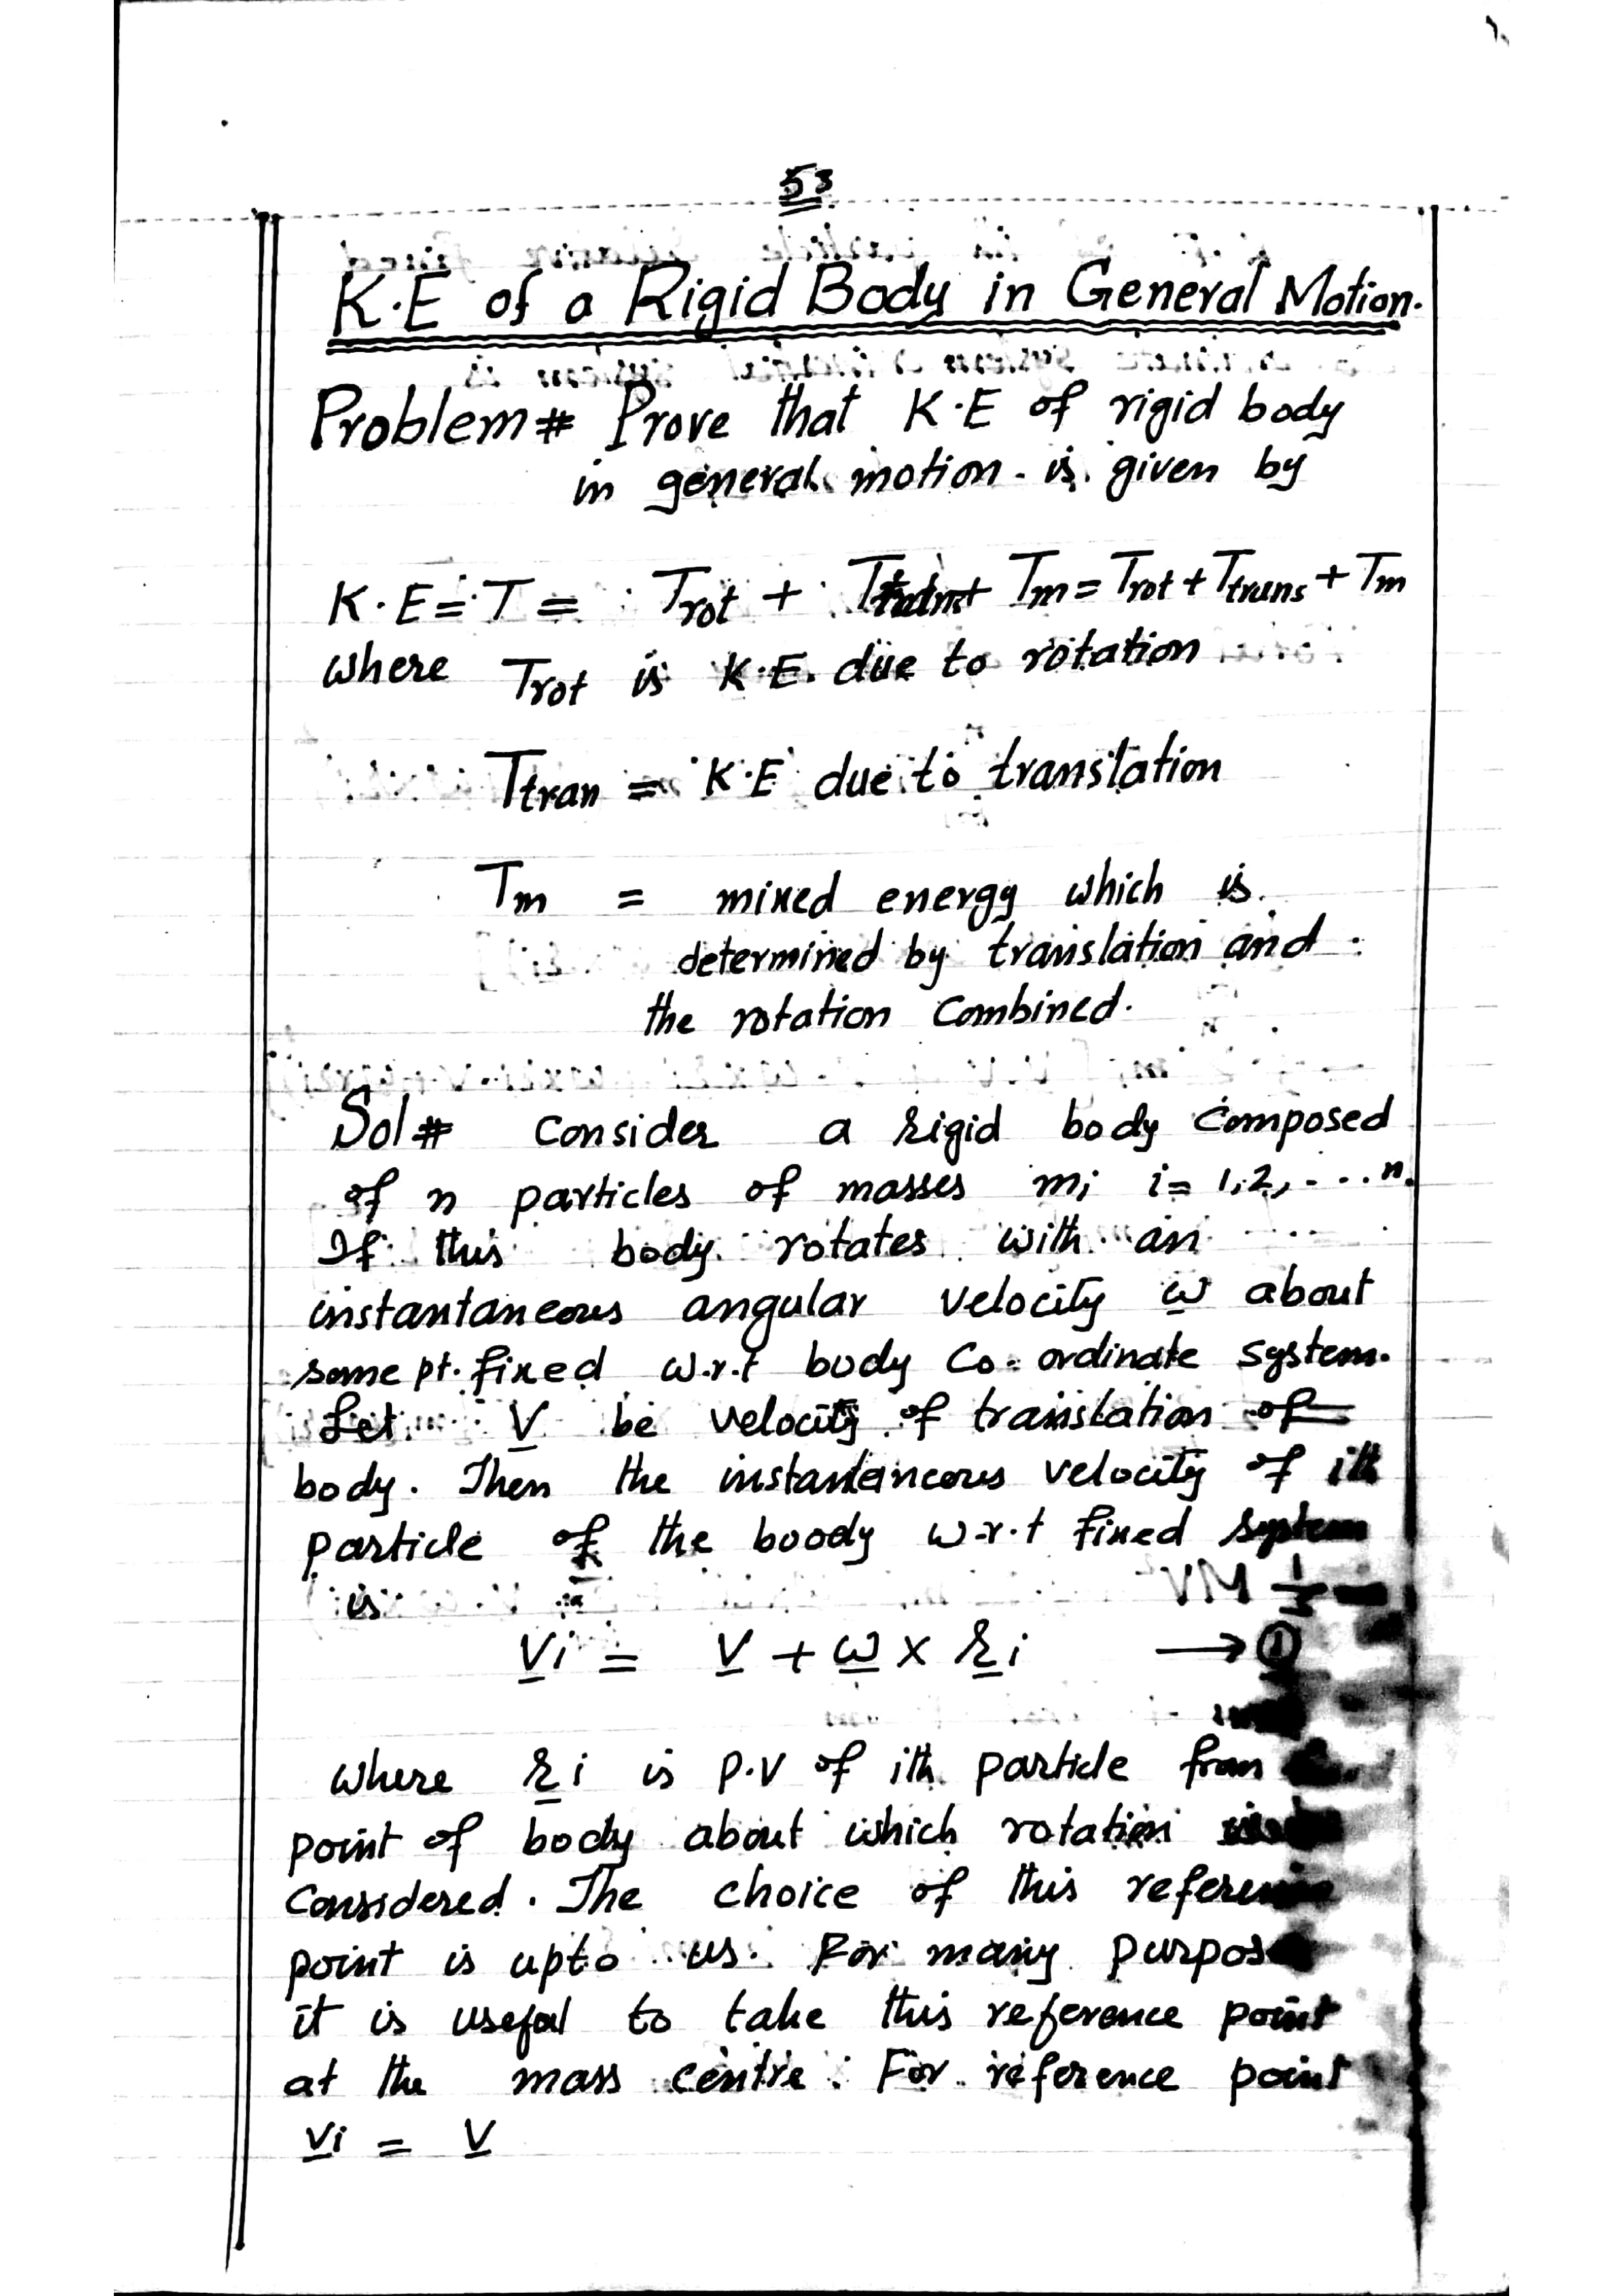 53
K.E of a Rigid Body in General Motion.
Problem# Prove that K.E of rigid body
in general motion is given by
K.E = T = Trot + Ttrans + Tm = Trot + Ttrans + Tm
where Trot is K.E. due to rotation
Ttran = K.E due to translation
Tm = mixed energy which is
determined by translation and
the rotation combined.
Sol# Consider a rigid body composed
of n particles of masses mi i= 1,2, - ... n.
If this body rotates with an
instantaneous angular velocity ω about
some pt. fixed w.r.t body Co-ordinate system.
Let V be velocity of translation of
body. Then the instantaneous velocity of ith
particle of the boody w.r.t fixed system
is
Vi = V + ω × ri → ①
where ri is P.V of ith particle from
point of body about which rotation is
Considered. The choice of this reference
point is upto us. For many purpos
it is useful to take this reference point
at the mass centre. For reference point
Vi = V